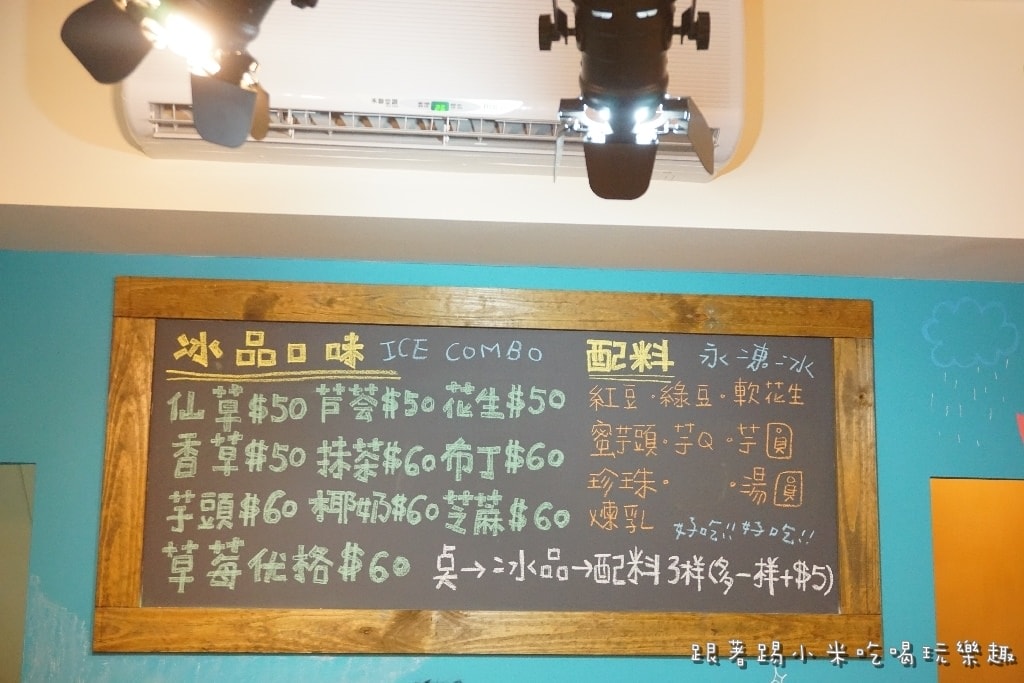 冰品口味 ICE COMBO
仙草$50 芦荟$50 花生$50
香草$50 抹茶$60 布丁$60
芋頭$60 椰奶$60 芝蔴$60
草莓优格$60
配料 永凍冰
紅豆·綠豆·軟花生
蜜芋頭·芋Q·芋圓
珍珠· ·湯圓
煉乳 好吃!! 好吃!!
桌→冰品→配料3樣(多一樣+$5)
跟著踢小米吃喝玩樂趣